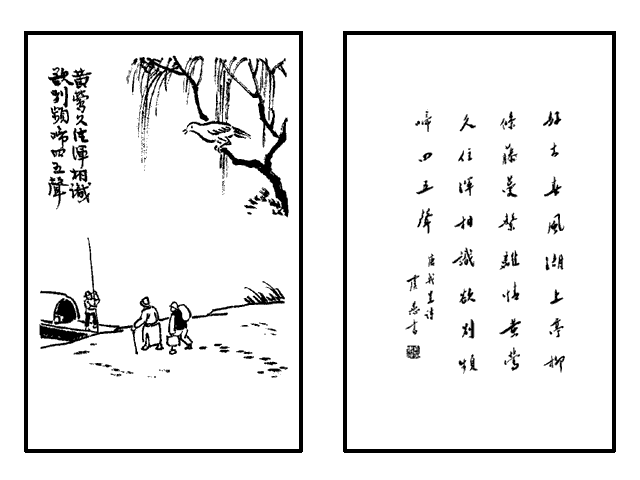 黄鶯久住渾相識
欲别頻啼四五聲
好去春風湖上亭柳
條藤蔓繫離情黄鶯
久住渾相識欲别頻
啼四五聲
唐戎昱诗
虞愚书